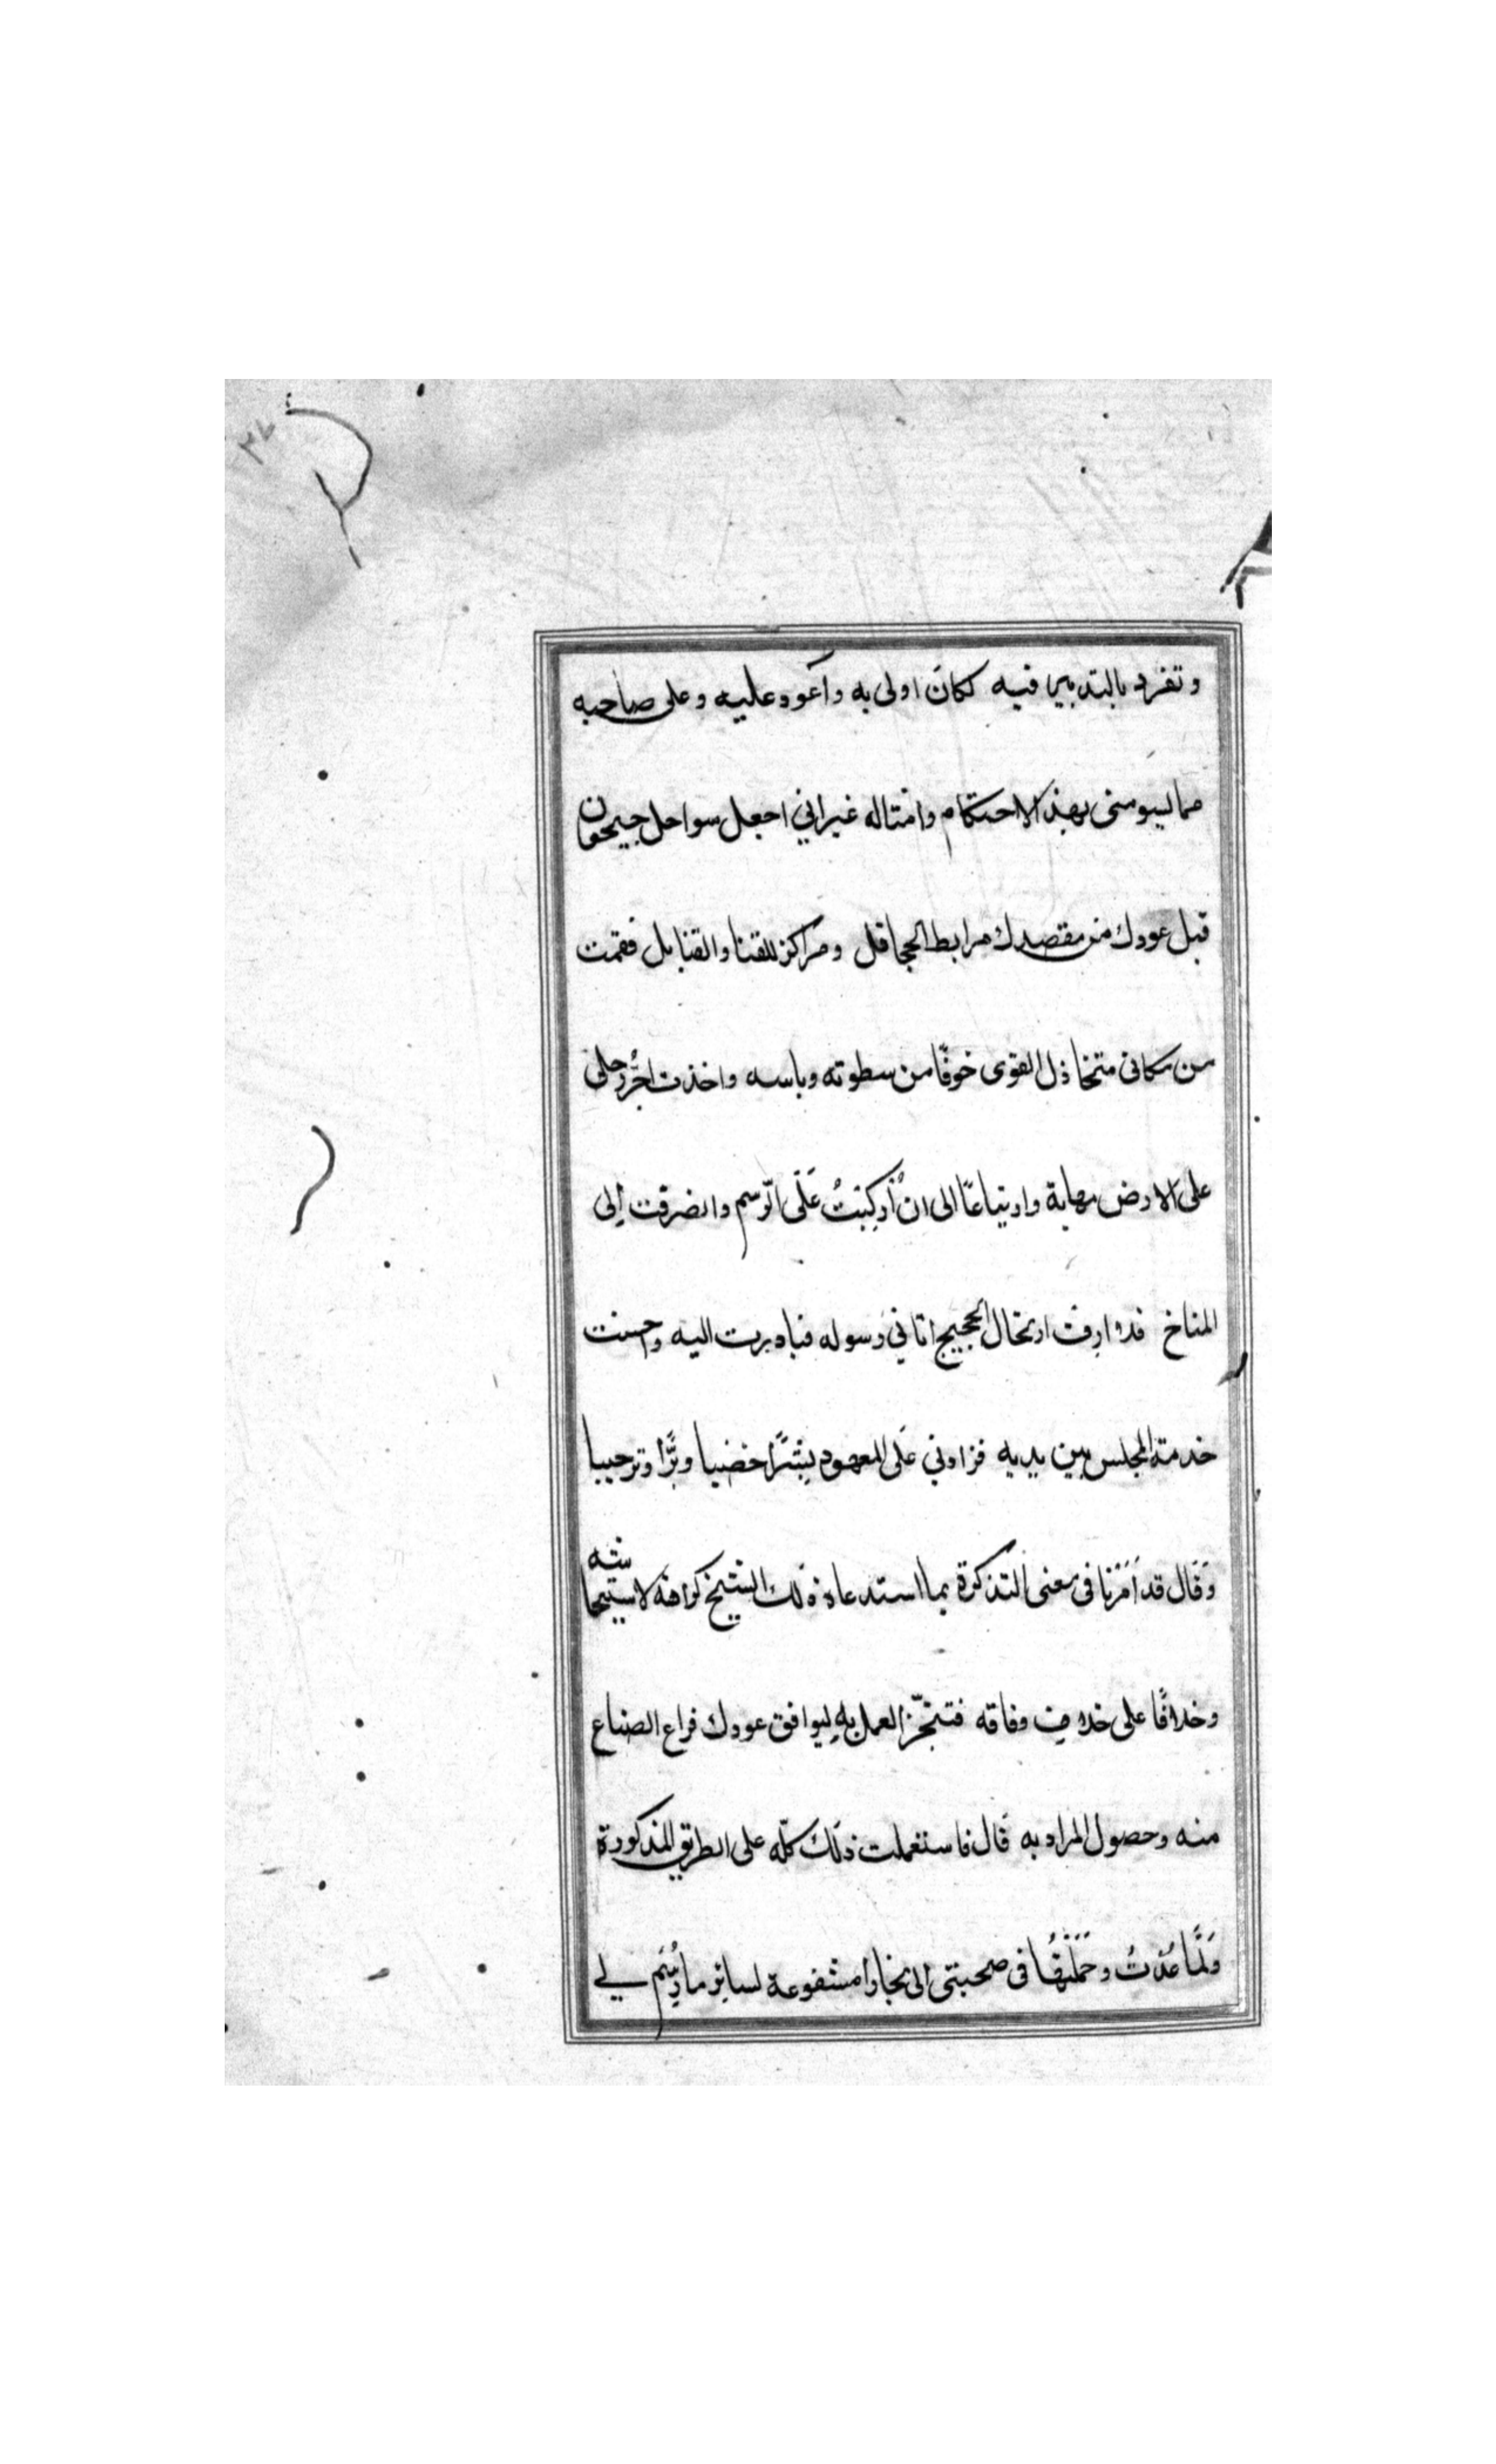 وتفرد بالتدبير فيه لكان اولى به وأعود عليه وعلى صاحبه
مما ليسومنى بهذا الاحتكام وامثاله غير اني اجعل سواحل جيحون
قبل عودك من مقصدك مرابط الجحافل ومراكز للقنا والقنابل فقمت
من مكانى متخاذل القوى خوفًا من سطوته وباسه واخذت اجُرُّ رجلى
على الارض مهابة وارتياعًا الى انْ أُركِبْتُ عَلَى الرّسم وانصرقت إلى
المناخ فلما ارف ارتحال الحجيج اتاني رسوله فبادرت اليه واحسنت
خدمة المجلس بين يديه فزادني عَلى المعهود بِشرًا خضيبا وبرًّا وترحيبا
وَقَال قد أمَرْنا فى معنى التذكرة بما استدعاه ذلك الشيخ كراهة لاستيحاشه
وخلافًا على خلاف وفاقه فتنجّز العمل به ليوافق عودك فراع الصناع
منه وحصول المراد به قال فاستعملت ذلك كلّه على الطريق المذكورة
وَلَمَّا عُدْتُ وحَمَلْتُهَا فى صحبتى الى بخارا مشفوعة لسائر ما رُسِم لي